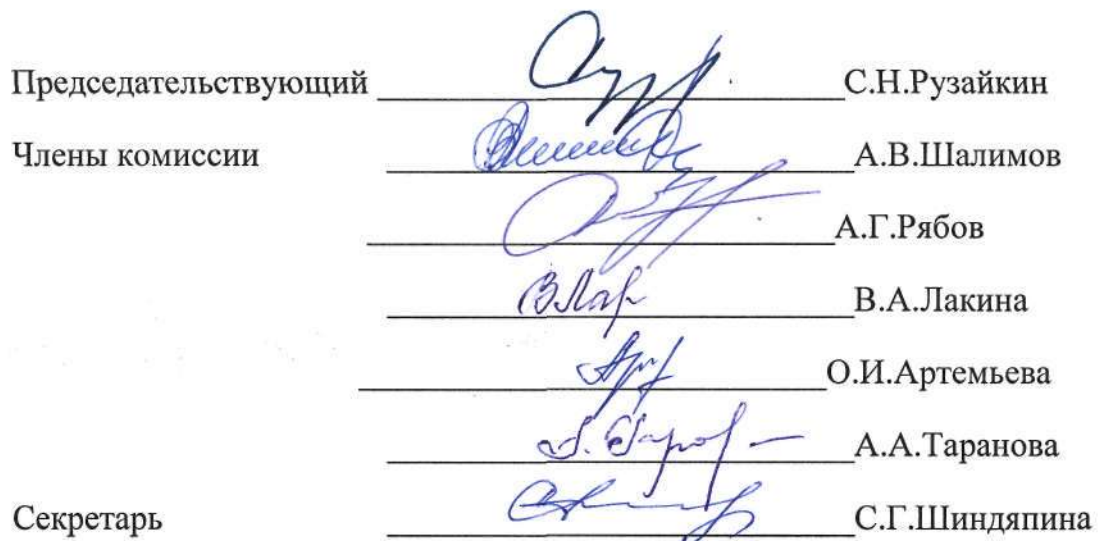 Председательствующий С.Н.Рузайкин
Члены комиссии А.В.Шалимов
А.Г.Рябов
В.А.Лакина
О.И.Артемьева
А.А.Таранова
Секретарь С.Г.Шиндяпина